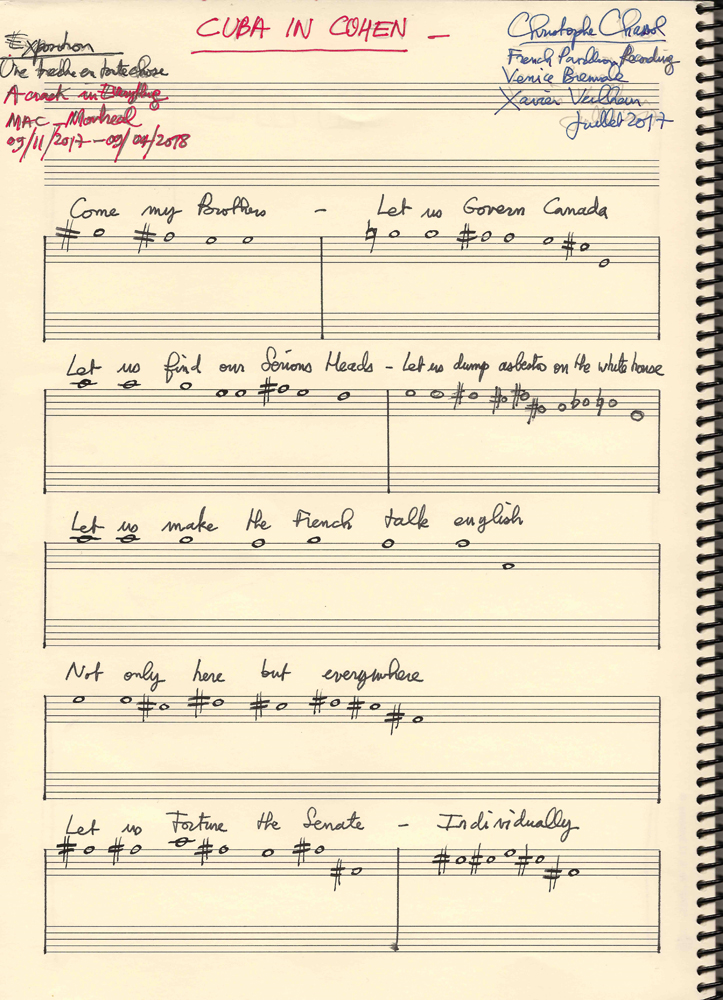 CUBA IN COHEN -
Exposition
Une brèche en toute chose
A crack in Everything
MAC - Montreal
09/11/2017 - 09/04/2018
Christophe Chassol
French Pavillion Recording
Venice Biennale
Xavier Veilhan
Juillet 2017
Come my Brothers - Let us Govern Canada
Let us find our Serious Heads - Let us dump asbestos on the white house
Let us make the French talk english
Not only here but everywhere
Let us Torture the Senate - Individually